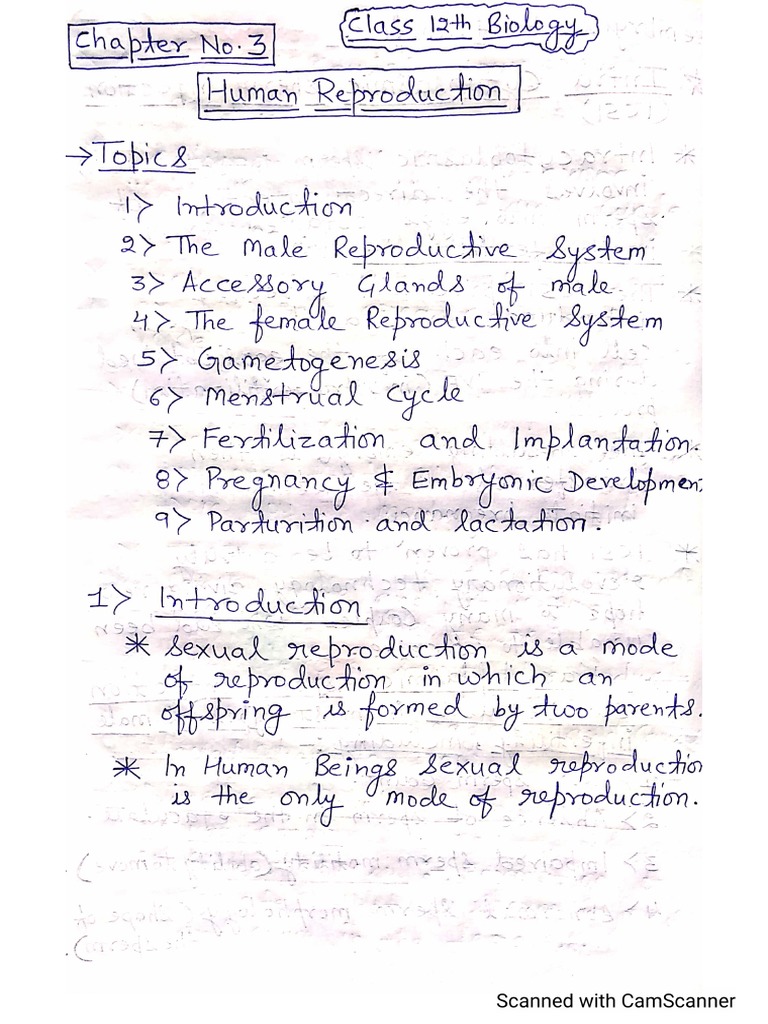 Class 12th Biology
Chapter No. 3
Human Reproduction
→ Topics
1> Introduction
2> The Male Reproductive System
3> Accessory Glands of male
4> The female Reproductive System
5> Gametogenesis
6> Menstrual Cycle
7> Fertilization and Implantation.
8> Pregnancy & Embryonic Developmen
9> Parturition and lactation.
1> Introduction
* Sexual reproduction is a mode
of reproduction in which an
offspring is formed by two parents.
* In Human Beings Sexual reproductio
is the only mode of reproduction.
Scanned with CamScanner